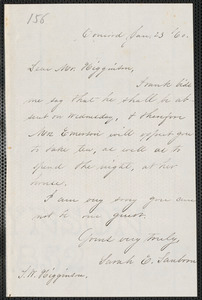 156
Concord Jan. 23 '60.
Dear Mr. Higginson,
Frank bids
me say that he shall be ab
sent on Wednesday, & therefore
Mrs. Emerson will expect you
to take tea, as well as to
spend the night, at her
house.
I am very sorry you can
not be our guest.
Yours very truly,
Sarah E. Sanborn
T. W. Higginson.